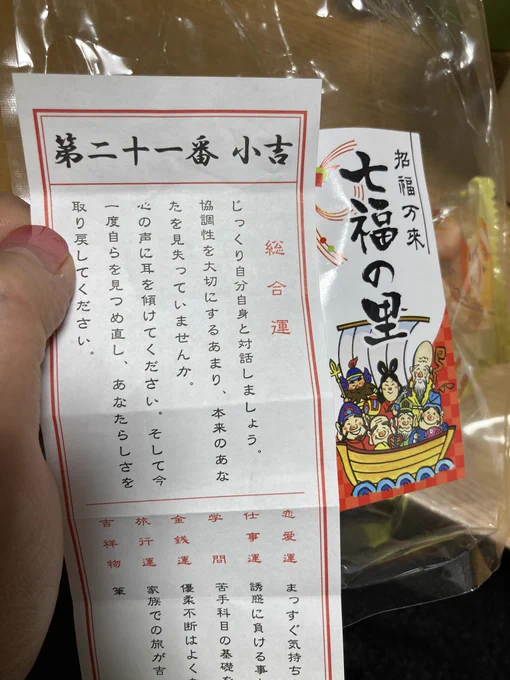 第二十一番 小吉
総合運
じっくり自分自身と対話しましょう。
協調性を大切にするあまり、本来のあな
たを見失っていませんか。
心の声に耳を傾けてください。そして今
一度自らを見つめ直し、あなたらしさを
取り戻してください。
恋愛運 まっすぐ気持ち
仕事運 誘惑に負ける事
学問 苦手科目の基礎を
金銭運 優柔不断はよくあ
旅行運 家族での旅が吉
吉祥物 筆
招福万来
七福の里